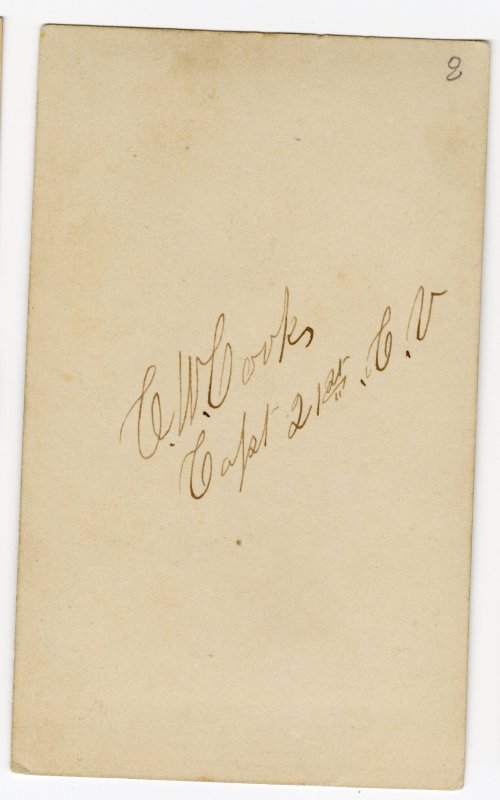 2
C. W. Cooks
Capt 21st. C. V